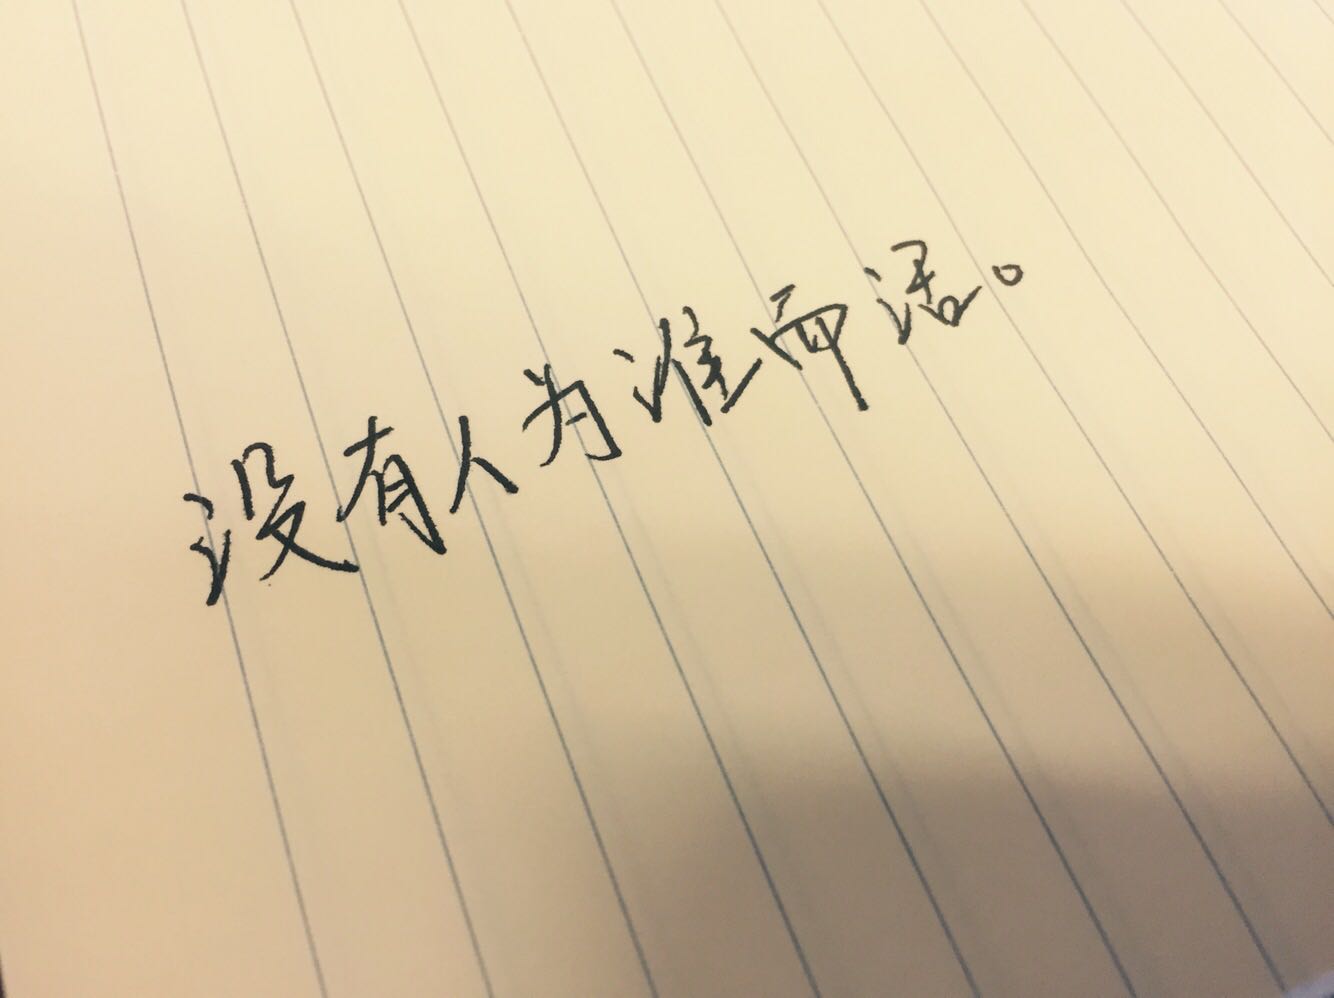 没有人为谁而活。